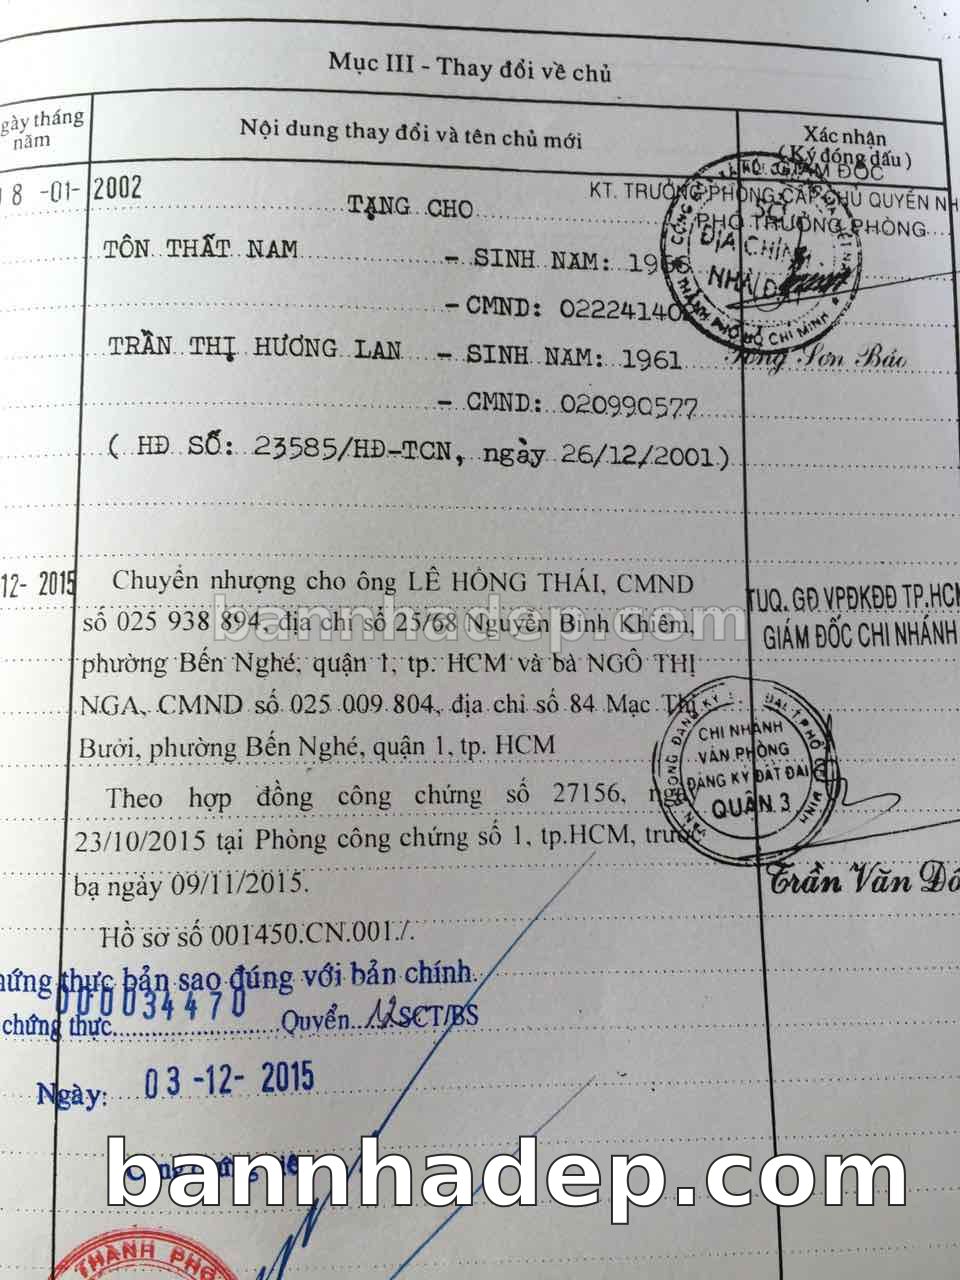 Mục III - Thay đổi về chủ
gày tháng năm
Nội dung thay đổi và tên chủ mới
Xác nhận
(Ký đóng dấu)
GIÁM ĐỐC
8 -01- 2002
TẶNG CHO
KT. TRƯỞNG PHÒNG CẤP CHỦ QUYỀN NH
PHÓ TRƯỞNG PHÒNG
TÔN THẤT NAM - SINH NĂM: 1966
ĐỊA CHÍNH
NHÀ ĐẤT
THÀNH PHỐ HỒ CHÍ MINH
- CMND: 02224140
TRẦN THỊ HƯƠNG LAN - SINH NĂM: 1961
Tống Sơn Bảo
- CMND: 020990577
( HĐ SỐ: 23585/HĐ-TCN, ngày 26/12/2001)
12- 2015
Chuyển nhượng cho ông LÊ HỒNG THÁI, CMND
số 025 938 894, địa chỉ số 25/68 Nguyễn Bỉnh Khiêm,
phường Bến Nghé, quận 1, tp. HCM và bà NGÔ THỊ
NGA, CMND số 025 009 804, địa chỉ số 84 Mạc Thị
Bưởi, phường Bến Nghé, quận 1, tp. HCM
bannhadep.com
TUQ. GĐ VPĐKĐĐ TP.HCM
GIÁM ĐỐC CHI NHÁNH
CHI NHÁNH
VĂN PHÒNG
ĐĂNG KÝ ĐẤT ĐAI
QUẬN 3
Theo hợp đồng công chứng số 27156,
23/10/2015 tại Phòng công chứng số 1, tp.HCM, trước
bạ ngày 09/11/2015.
Trần Văn
Hồ sơ số 001450.CN.001./.
hứng thực bản sao đúng với bản chính.
000034470
chứng thực Quyển 12 SCT/BS
Ngày: 03-12-2015
bannhadep.com
THÀNH PHỐ